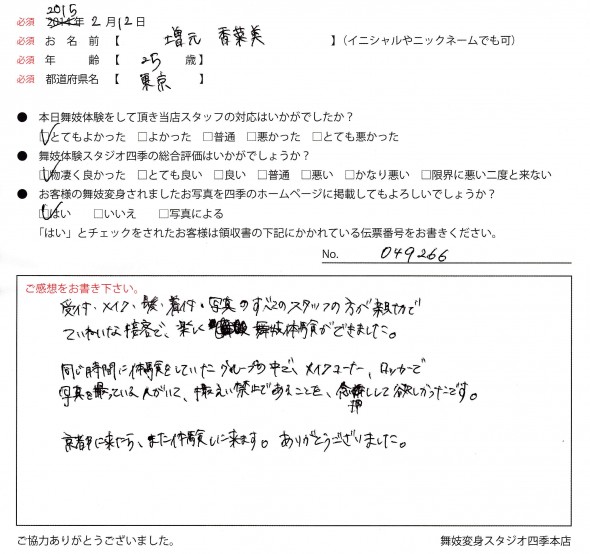 必須 2015年 2月12日
必須 お名前【 増元 香菜美 】(イニシャルやニックネームでも可)
必須 年齢【 25 歳】
必須 都道府県名【 東京 】
● 本日舞妓体験をして頂き当店スタッフの対応はいかがでしたか？
☑とてもよかった □よかった □普通 □悪かった □とても悪かった
● 舞妓体験スタジオ四季の総合評価はいかがでしょうか？
☑物凄く良かった □とても良い □良い □普通 □悪い □かなり悪い □限界に悪い二度と来ない
● お客様の舞妓変身されましたお写真を四季のホームページに掲載してもよろしいでしょうか？
☑はい □いいえ □写真による
「はい」とチェックをされたお客様は領収書の下記にかかれている伝票番号をお書きください。
No. 049266
ご感想をお書き下さい。
受付・メイク・髪・着付・写真のすべてのスタッフの方が親切で
ていねいな接客で、楽しく舞妓体験ができました。
同じ時間に体験をしていたグループの中で、メイクコーナー、ロッカーで
写真を撮っている人がいて、撮えい禁止であることを、念押しして欲しかったです。
京都に来たら、また体験しに来ます。ありがとうございました。
ご協力ありがとうございました。 舞妓変身スタジオ四季本店